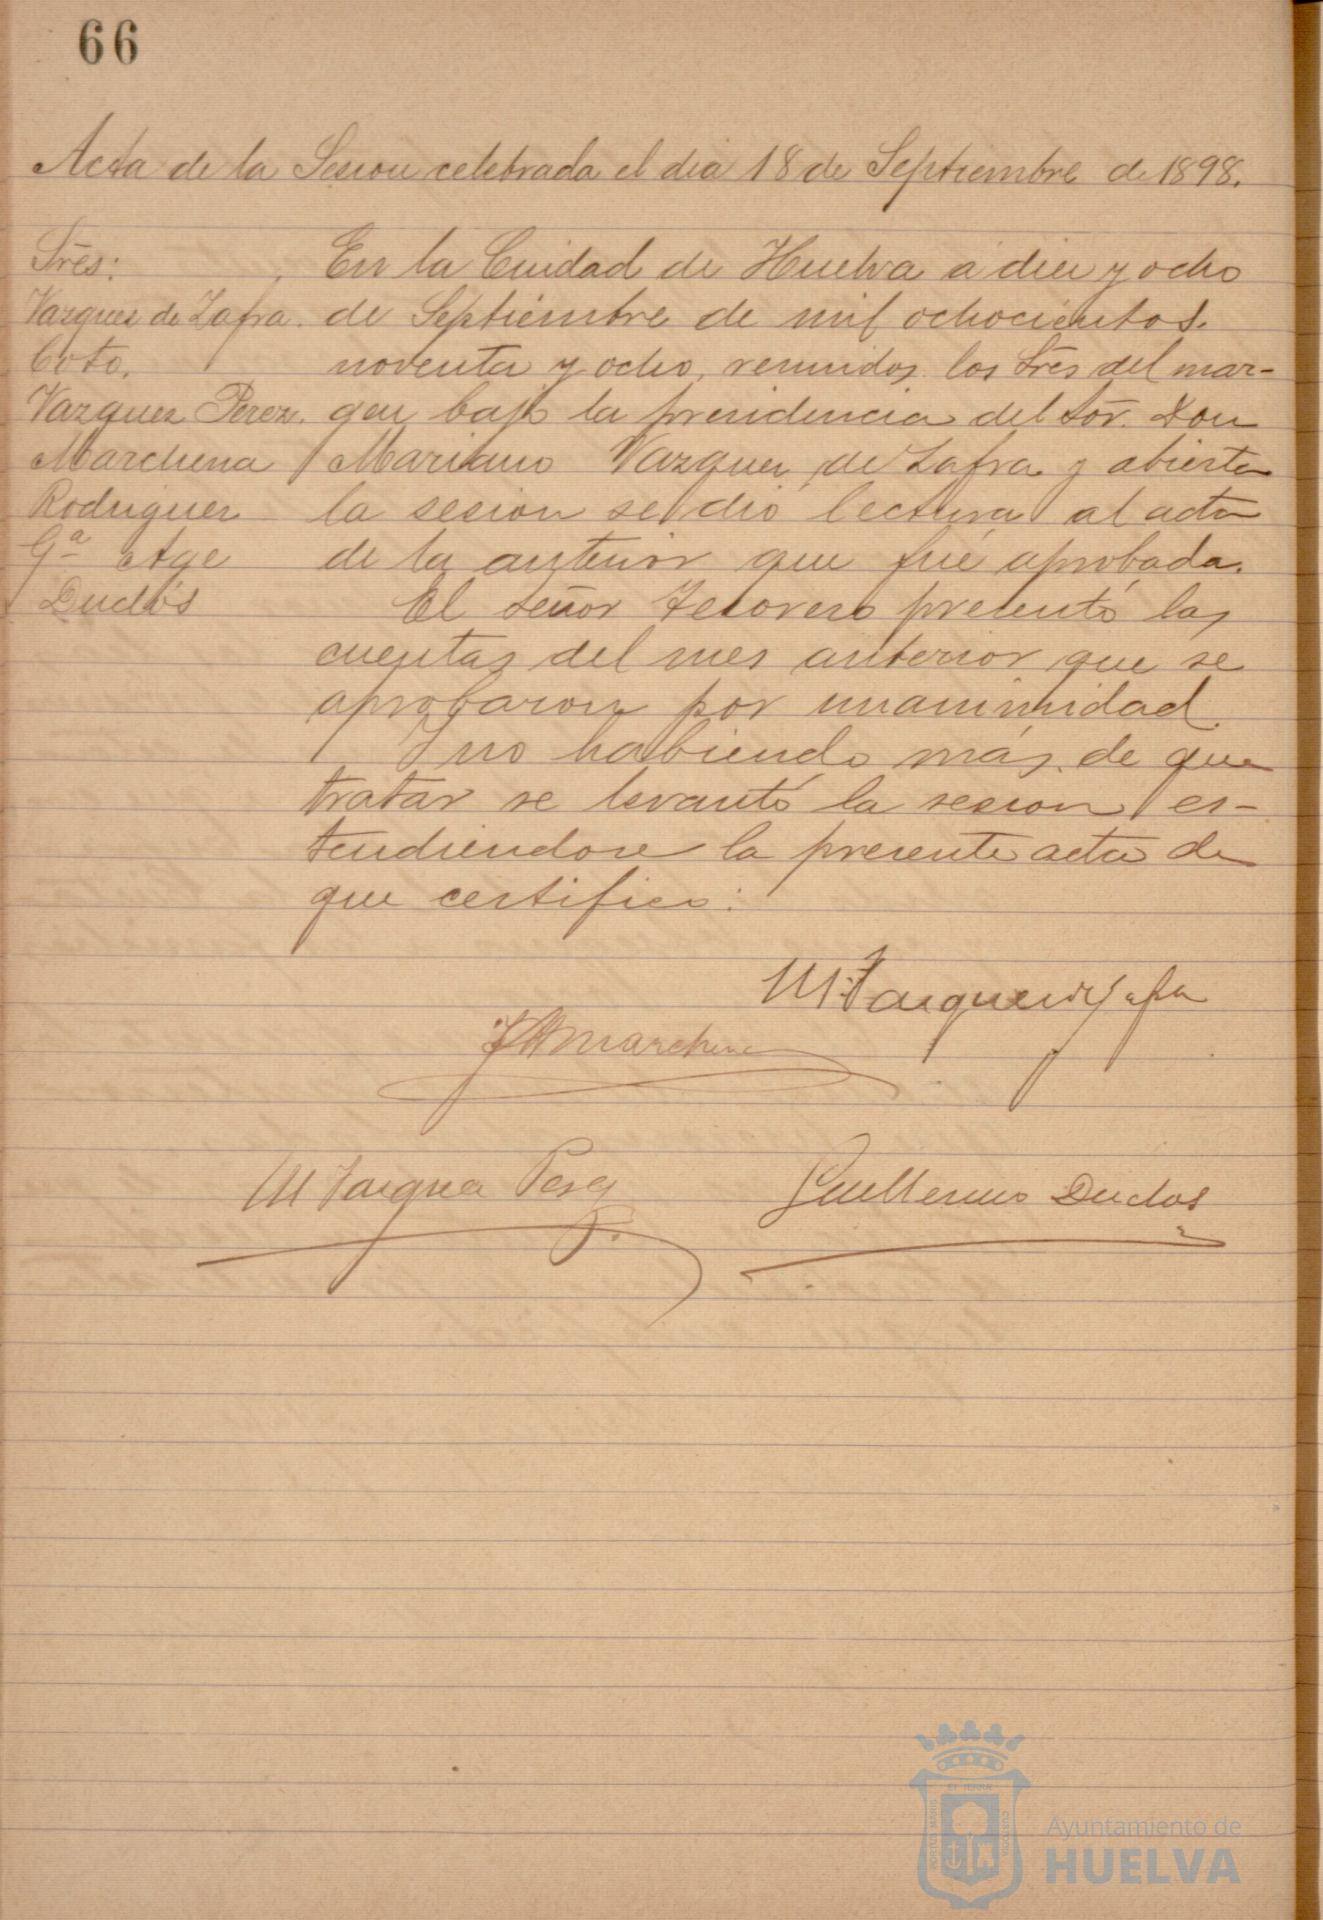 66
Acta de la Sesion celebrada el dia 18 de Septiembre de 1898.
Srēs:
Vazquez de Zafra.
Coto.
Vazquez Perez.
Marchena
Rodriguez
Gª Age
Duclós
En la Ciudad de Huelva á diez y ocho
de Septiembre de mil ochocientos
noventa y ocho, reunidos los Srēs del mar-
gen bajo la presidencia del Sor. Don
Mariano Vazquez de Zafra y abierta
la sesion se dió lectura al acta
de la anterior que fué aprobada.
El señor Tesorero presentó las
cuentas del mes anterior que se
aprobaron por unanimidad.
Y no habiendo más de que
tratar se levantó la sesion es-
tendiendose la presente acta de
que certifico:
M. Vazquez de Zafra
Marchena
M Vazquez Perez
Guillermo Duclos
PORTUS MARIS
ET TERRÆ
CUSTODIA
Ayuntamiento de
HUELVA